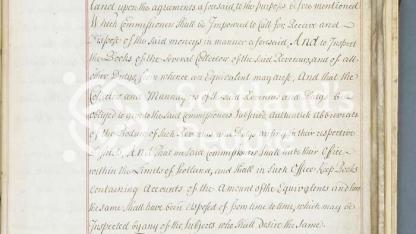 land upon the agreements aforesaid to the purposes before mentioned
Which Commissioners shall be Impowered to Call for, Receive and
Dispose of the said moneys in manner aforesaid, And to Inspect
the Books of the several Collectors of the said Revenues, and of all
other Dutys, from whence an Equivalent may arise, And that the
Collectors and Managers of the said Revenues and Dutys be
obliged to give to the said Commissioners subscrived authentick abbreviats
of the Produce of such Revenues and Dutys arising in their respective
Districts, And that the said Commissioners shall have their Office
within the Limits of Scotland, and shall in such Office keep Books
containing Accounts of the Amount of the Equivalents and how
the same shall have been disposed of from time to time, which may be
Inspected by any of the Subjects who shall desire the same.
Scotland's
People